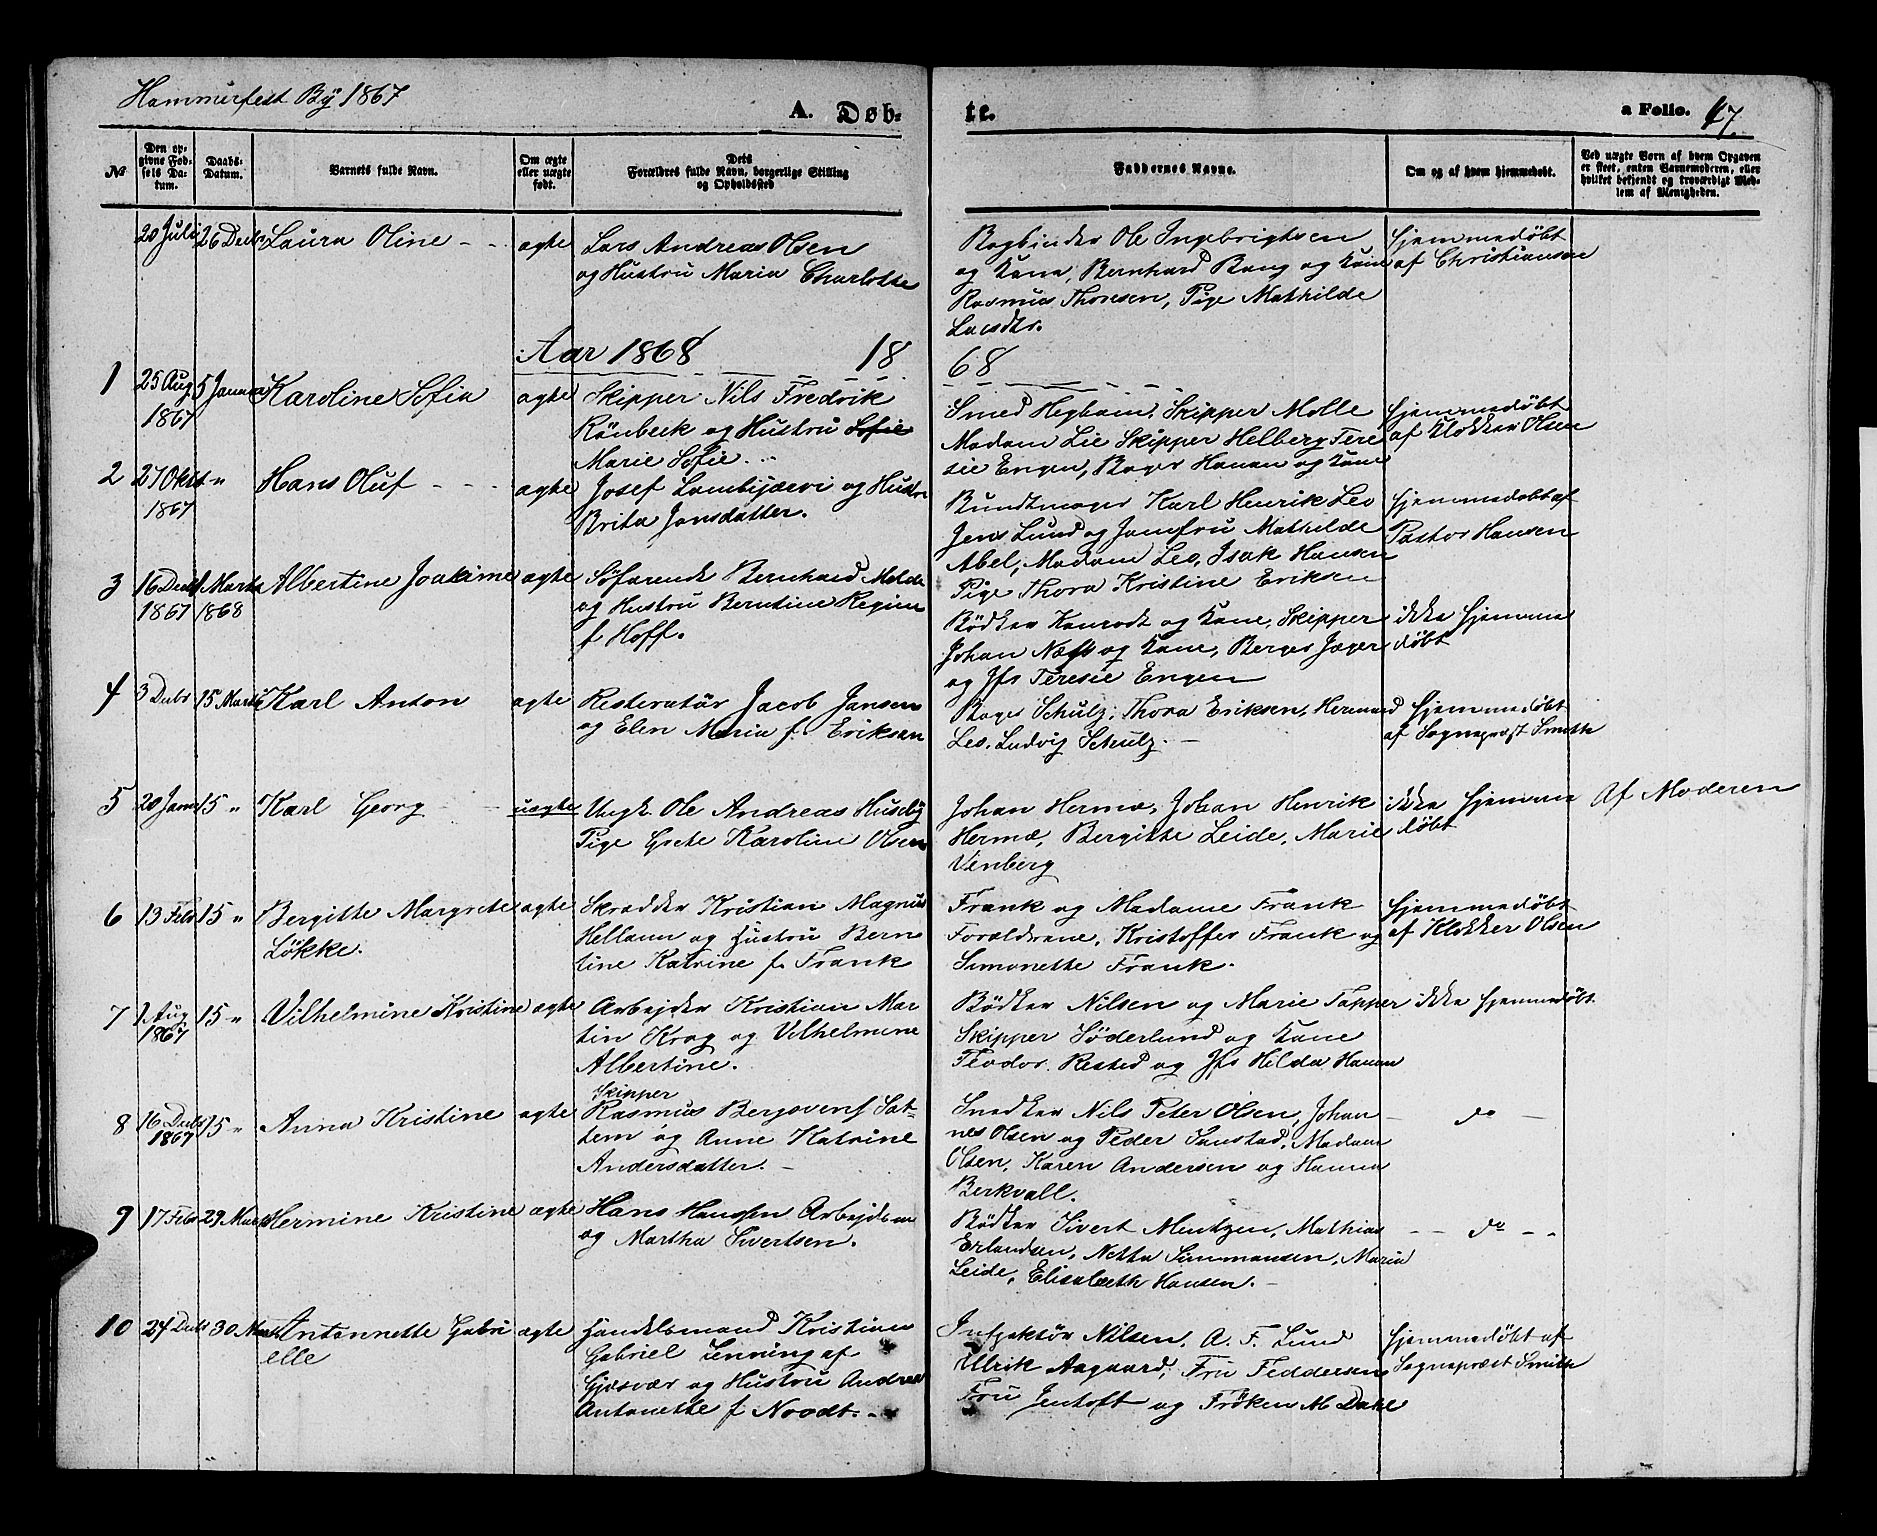 Hammerfest By 1867
A. Døb-
te.
a Folio. 17.
№
Den op-
givne Fød-
sels Da-
tum.
Daabs-
Datum.
Barnets fulde Navn.
Om ægte
eller uægte
født.
Dets
Forældres fulde Navn, borgerlige Stilling
og Opholdssted
Faddernes Navne.
Om og af hvem hjemmedøbt.
Ved uægte Børn af hvem Opgaven
er skeet, enten Barnemoderen, eller
hvilket bekjendt og troværdigt Med-
lem af Menigheden.
20 Juli 26 Decbr Laura Oline - - ægte
Lars Andreas Olsen
og Hustru Maria Charlotte
Bogbinder Ole Ingebrigtsen
og Kone, Bernhard Bang og Kone
Rasmus Thomsen, Pige Mathilde
Larsdtr.
hjemmedøbt
af Christiansen
Aar 1868 18
68
1 25 Aug 1867 5 Januar Karoline Sofia ægte
Skipper Nils Fredrik
Rönbeck og Hustru Sofie
Marie Sofie.
Smed Hegbom, Skipper Molle
Madam Lie Skipper Helberg Tere
sie Engen, Bager Hanan og Kone
hjemmedøbt
af Klokker Olsen
2 27 Oktbr 1867 " Hans Oluf - - - ægte
Josef Lambijærvi og Hustru
Brita Jonsdatter.
Bundtmager Karl Henrik Leo
Jens Lund og Jomfru Mathilde
Abel, Madam Leo, Isak Hansen
Pige Thora Kristine Eriksen
hjemmedøbt af
Pastor Hansen
3 16 Decbr 1867 1 Marts 1868 Albertine Joakime ægte
Søfarende Bernhard Molde
og Hustru Berntine Regine
f Hoff.
Bödker Konrodt og Kone, Skipper
Johan Næss og Kone, Berger Jæger
og Jfr Teresie Engen
ikke hjemme
döbt
4 3 Decbr 15 Marts Karl Anton ægte
Resteratör Jacob Jansen
og Elen Maria f. Eriksen
Bager Schulz, Thora Eriksen, Hermand
Leo, Ludvig Schulz. -
hjemmedøbt
af Sognepræst Smith
5 20 Janr 15 " Karl Georg uægte
Ungk. Ole Andreas Huseby
Pige Grete Karoline Olsen
Johan Hermo, Johan Henrik
Hermo, Bergitte Leide, Marie
Venberg
ikke hjemme
døbt
Af Moderen
6 13 Febr 15 " Bergitte Margrete
Løkke. ægte
Skrædder Kristian Magnus
Hellann og Hustru Bern
tine Katrine f. Frank
Frank og Madame Frank
Forældrene, Kristoffer Frank og
Simonette Frank.
hjemmedøbt
af Klokker Olsen
7 1 Aug 1867 15 " Vilhelmine Kristine ægte
Arbejder Kristian Mar
tin Krog og Vilhelmine
Albertine.
Bödker Nilsen og Marie Tapper
Skipper Söderlund og Kone
Teodor Rested og Jfr Hilda Hanan
ikke hjemmedøbt
8 16 Decbr 1867 15 " Anna Kristine ægte
Skipper
Rasmus Bergsvend Sat-
tem og Anne Katrine
Andersdatter. -
Snedker Nils Peter Olsen, Johan
nes Olsen og Peder Sanstad, Madam
Olsen, Karen Andersen og Hanna
Berkvall.
- do -
9 17 Febr 29 Marts Hermine Kristine ægte
Hans Hansen Arbejdsm
og Martha Sivertsen.
Bödker Sivert Mentzen, Mathias
Erlandsen, Netta Simmonsen, Maria
Leide, Elisabeth Hansen. -
- - do - -
10 24 Decbr 30 Marts Antonnette Gabri
elle ægte
Handelsmand Kristian
Gabriel Jenning af
Gjesvær og Hustru Andrea
Antonette f Noodt. -
Inspektör Nilsen, A. F. Lund
Ulrik Aagaard, Fru Feddersen
Fru Jentoft og Fröken M Dahl
hjemmedøbt af
Sognepræst Smith